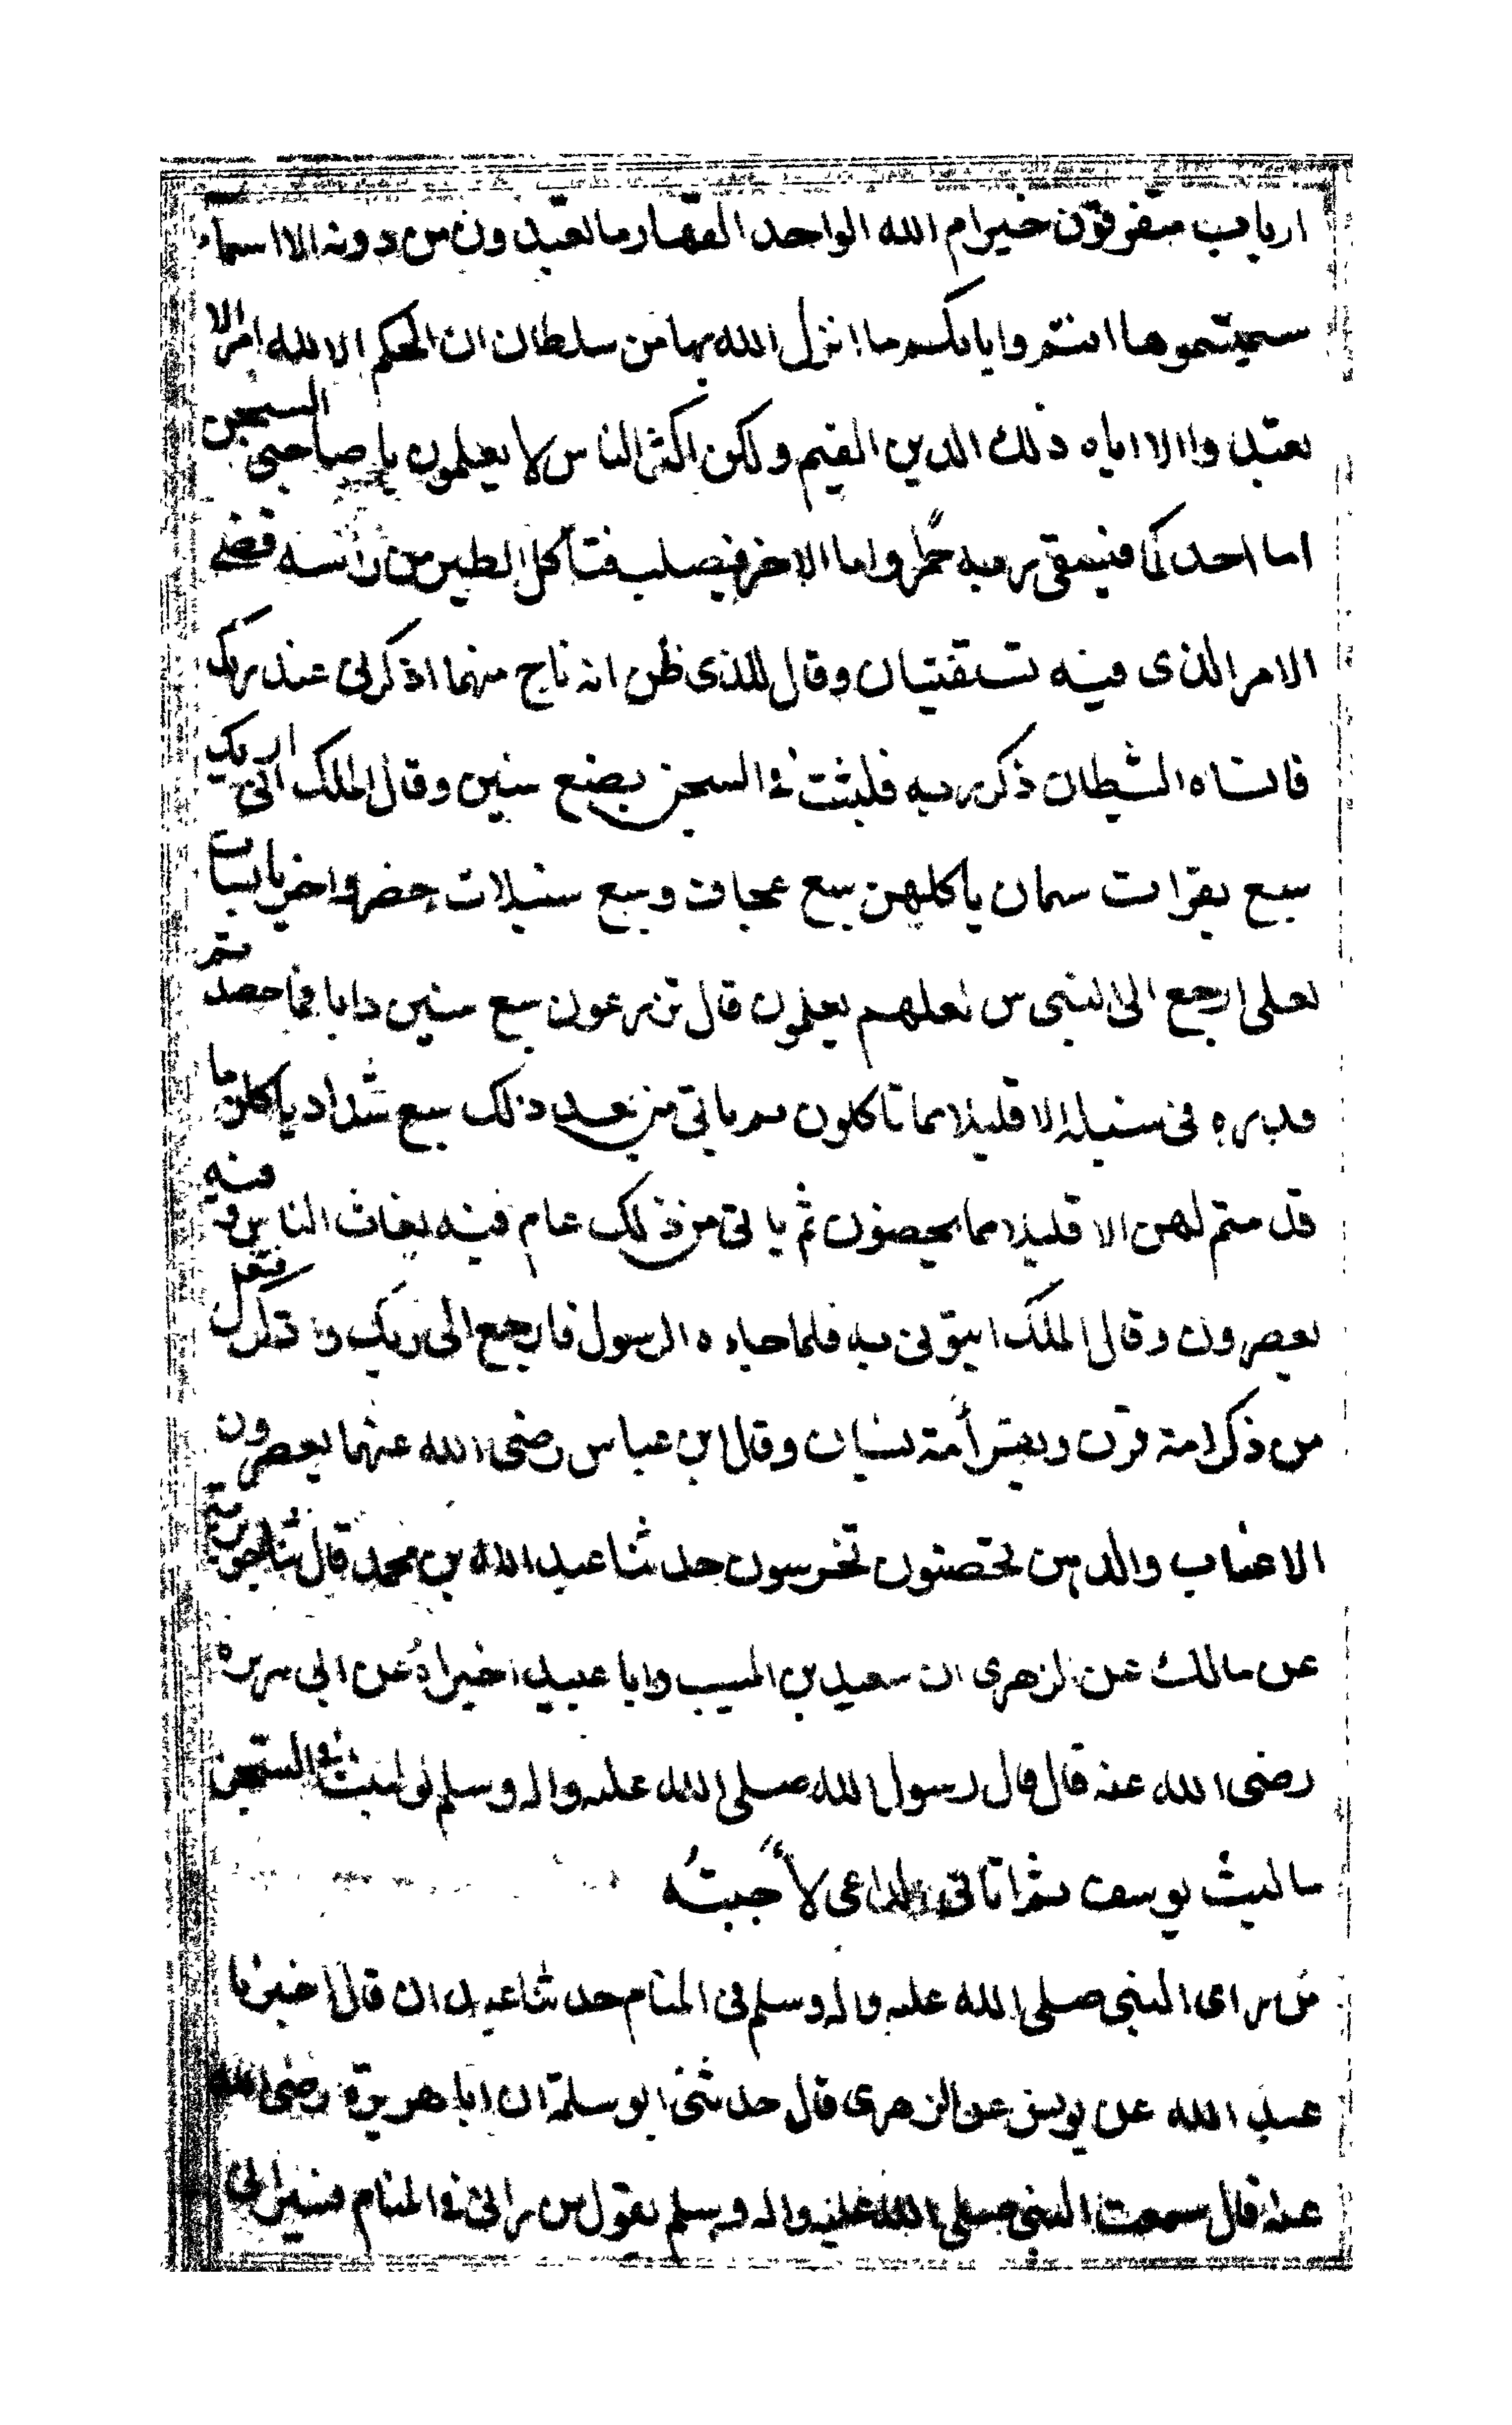 ارباب متفرقون خير ام الله الواحد القهار ما تعبدون من دونه الا اسماء
سميتموها انتم واباىكم ما انزل الله بها من سلطان ان الحكم الا لله امر الا
تعبدوا الا اياه ذلك الدين القيم ولكن اكثر الناس لا يعلمون يا صاحبى السجن
اما احدكما فيسقى ربه خمرا واما الاخر فيصلب فتاكل الطير من راسه قضى
الامر الذى فيه تستفتيان وقال للذى ظن انه ناج منهما اذكرنى عند ربك
فانساه الشيطان ذكر ربه فلبث فى السجن بضع سنين وقال الملك انى ارى
سبع بقرات سمان ياكلهن سبع عجاف وسبع سنبلات خضر واخر يابسات
لعلى ارجع الى الناس لعلهم يعلمون قال تزرعون سبع سنين دابا فما حصدتم
فذروه فى سنبله الا قليلا مما تاكلون ثم ياتى من بعد ذلك سبع شداد ياكلن ما
قدمتم لهن الا قليلا مما تحصنون ثم ياتى من ذلك عام فيه يغاث الناس وفيه
يعصرون وقال الملك ايتونى به فلما جاءه الرسول فارجع الى ربك وادكر افتعل
من ذكر امة قرن ويقرأ أمة نسيان وقال ابن عباس رضى الله عنهما يعصرون
الاعناب والدهن تحصنون تحرسون حدثنا عبد الله بن محمد قال ثنا جويرية
عن مالك عن الزهرى ان سعيد بن المسيب وابا عبيد اخبراه عن ابى هريره
رضى الله عنه قال قال رسول الله صلى الله عليه واله وسلم لو لبثت فى السجن
ما لبث يوسف ثم اتانى الداعى لأجبته
من راى النبى صلى الله عليه واله وسلم فى المنام حدثنا عبدان قال اخبرنا
عبد الله عن يونس عن الزهرى قال حدثنى ابو سلمة ان ابا هريرة رضى الله
عنه قال سمعت النبى صلى الله عليه واله وسلم يقول من رانى فى المنام فسيرانى